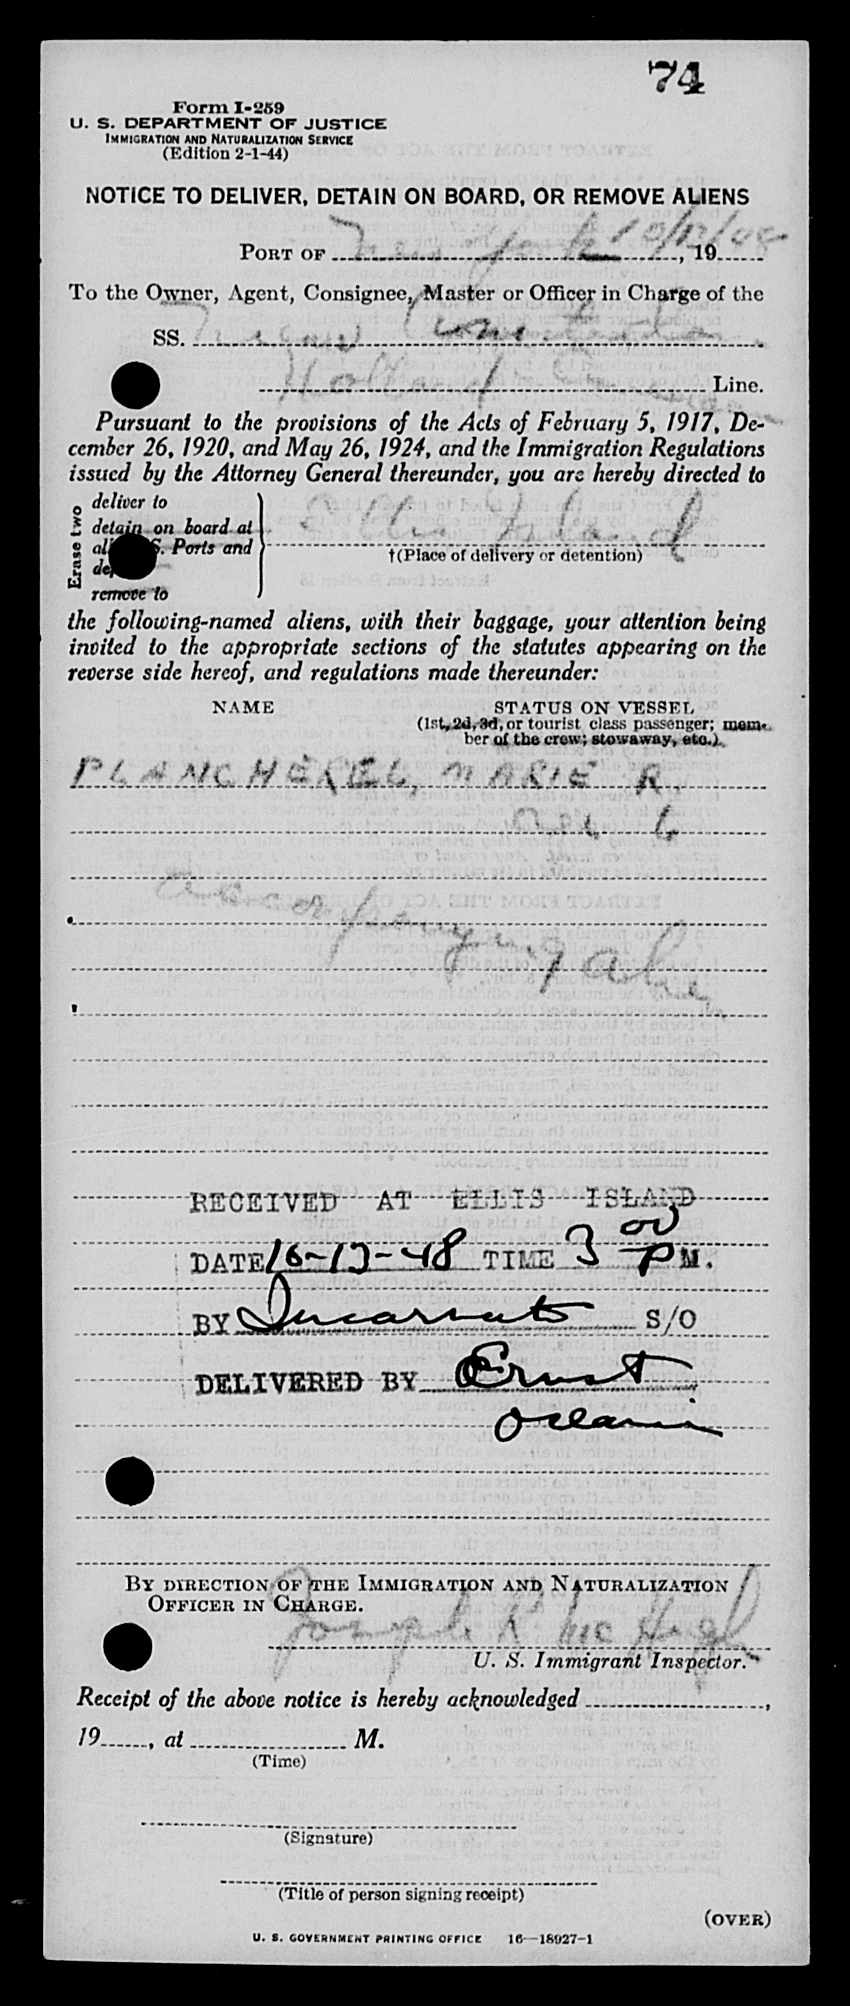 74
Form I-259
U. S. DEPARTMENT OF JUSTICE
IMMIGRATION AND NATURALIZATION SERVICE
(Edition 2-1-44)
NOTICE TO DELIVER, DETAIN ON BOARD, OR REMOVE ALIENS
PORT OF New York 10/17/48, 19
To the Owner, Agent, Consignee, Master or Officer in Charge of the
SS. Nieuw Amsterdam
Holland American Line.
Pursuant to the provisions of the Acts of February 5, 1917, De-
cember 26, 1920, and May 26, 1924, and the Immigration Regulations
issued by the Attorney General thereunder, you are hereby directed to
Erase two
deliver to
detain on board at
all S. Ports and
remove to
Ellis Island
†(Place of delivery or detention)
the following-named aliens, with their baggage, your attention being
invited to the appropriate sections of the statutes appearing on the
reverse side hereof, and regulations made thereunder:
NAME STATUS ON VESSEL
(1st, 2d, 3d, or tourist class passenger; mem-
ber of the crew; stowaway, etc.)
PLANCHEREL, MARIE R.
accompanying alien
RECEIVED AT ELLIS ISLAND
DATE 10-17-48 TIME 3 00 P M.
BY Incarnato S/O
DELIVERED BY Ernst
By DIRECTION OF THE IMMIGRATION AND NATURALIZATION
OFFICER IN CHARGE.
Joseph R. McHugh
U. S. Immigrant Inspector.
Receipt of the above notice is hereby acknowledged ,
19 , at M.
(Time)
(Signature)
(Title of person signing receipt)
(OVER)
U. S. GOVERNMENT PRINTING OFFICE 16—18927-1